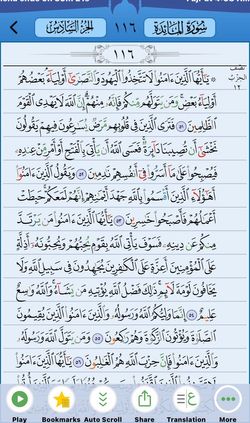 سُورَةُ المَائِدَة ١١٦ الجُزءُ السَّادِسُ
١١٦
نصف
الحزب
١٢
۞ يَٰٓأَيُّهَا ٱلَّذِينَ ءَامَنُوا۟ لَا تَتَّخِذُوا۟ ٱلْيَهُودَ وَٱلنَّصَٰرَىٰٓ أَوْلِيَآءَ بَعْضُهُمْ
أَوْلِيَآءُ بَعْضٍ وَمَن يَتَوَلَّهُم مِّنكُمْ فَإِنَّهُۥ مِنْهُمْ إِنَّ ٱللَّهَ لَا يَهْدِى ٱلْقَوْمَ
ٱلظَّٰلِمِينَ ٥١ فَتَرَى ٱلَّذِينَ فِى قُلُوبِهِم مَّرَضٌ يُسَٰرِعُونَ فِيهِمْ يَقُولُونَ
نَخْشَىٰٓ أَن تُصِيبَنَا دَآئِرَةٌ فَعَسَى ٱللَّهُ أَن يَأْتِىَ بِٱلْفَتْحِ أَوْ أَمْرٍ مِّنْ عِندِهِۦ
فَيُصْبِحُوا۟ عَلَىٰ مَآ أَسَرُّوا۟ فِىٓ أَنفُسِهِمْ نَٰدِمِينَ ٥٢ وَيَقُولُ ٱلَّذِينَ ءَامَنُوٓا۟
أَهَٰٓؤُلَآءِ ٱلَّذِينَ أَقْسَمُوا۟ بِٱللَّهِ جَهْدَ أَيْمَٰنِهِمْ إِنَّهُمْ لَمَعَكُمْ حَبِطَتْ
أَعْمَٰلُهُمْ فَأَصْبَحُوا۟ خَٰسِرِينَ ٥٣ يَٰٓأَيُّهَا ٱلَّذِينَ ءَامَنُوا۟ مَن يَرْتَدَّ
مِنكُمْ عَن دِينِهِۦ فَسَوْفَ يَأْتِى ٱللَّهُ بِقَوْمٍ يُحِبُّهُمْ وَيُحِبُّونَهُۥٓ أَذِلَّةٍ
عَلَى ٱلْمُؤْمِنِينَ أَعِزَّةٍ عَلَى ٱلْكَٰفِرِينَ يُجَٰهِدُونَ فِى سَبِيلِ ٱللَّهِ وَلَا
يَخَافُونَ لَوْمَةَ لَآئِمٍ ذَٰلِكَ فَضْلُ ٱللَّهِ يُؤْتِيهِ مَن يَشَآءُ وَٱللَّهُ وَٰسِعٌ
عَلِيمٌ ٥٤ إِنَّمَا وَلِيُّكُمُ ٱللَّهُ وَرَسُولُهُۥ وَٱلَّذِينَ ءَامَنُوا۟ ٱلَّذِينَ يُقِيمُونَ
ٱلصَّلَوٰةَ وَيُؤْتُونَ ٱلزَّكَوٰةَ وَهُمْ رَٰكِعُونَ ٥٥ وَمَن يَتَوَلَّ ٱللَّهَ وَرَسُولَهُۥ
وَٱلَّذِينَ ءَامَنُوا۟ فَإِنَّ حِزْبَ ٱللَّهِ هُمُ ٱلْغَٰلِبُونَ ٥٦ يَٰٓأَيُّهَا ٱلَّذِينَ ءَامَنُوا۟
Play Bookmarks Auto Scroll Share Translation More